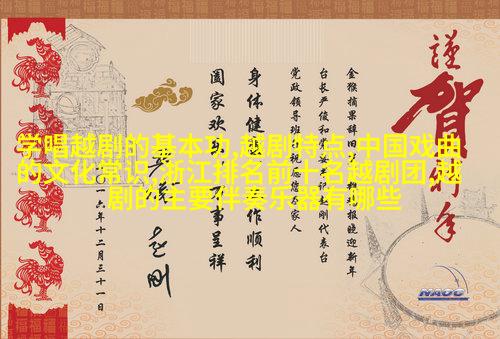 学唱越剧的基本功,越剧特点,中国戏曲
的文化常识,浙江排名前十名越剧团,越
剧的主要伴奏乐器有哪些
謹
賀
新年
金猴摘果辞旧 报晓迎新年
台长严俊和 刚代表台
党政领导班 祝 家人
身体健 作顺利
阖家欢 事呈祥
一六年十二月三十一日
NAOC